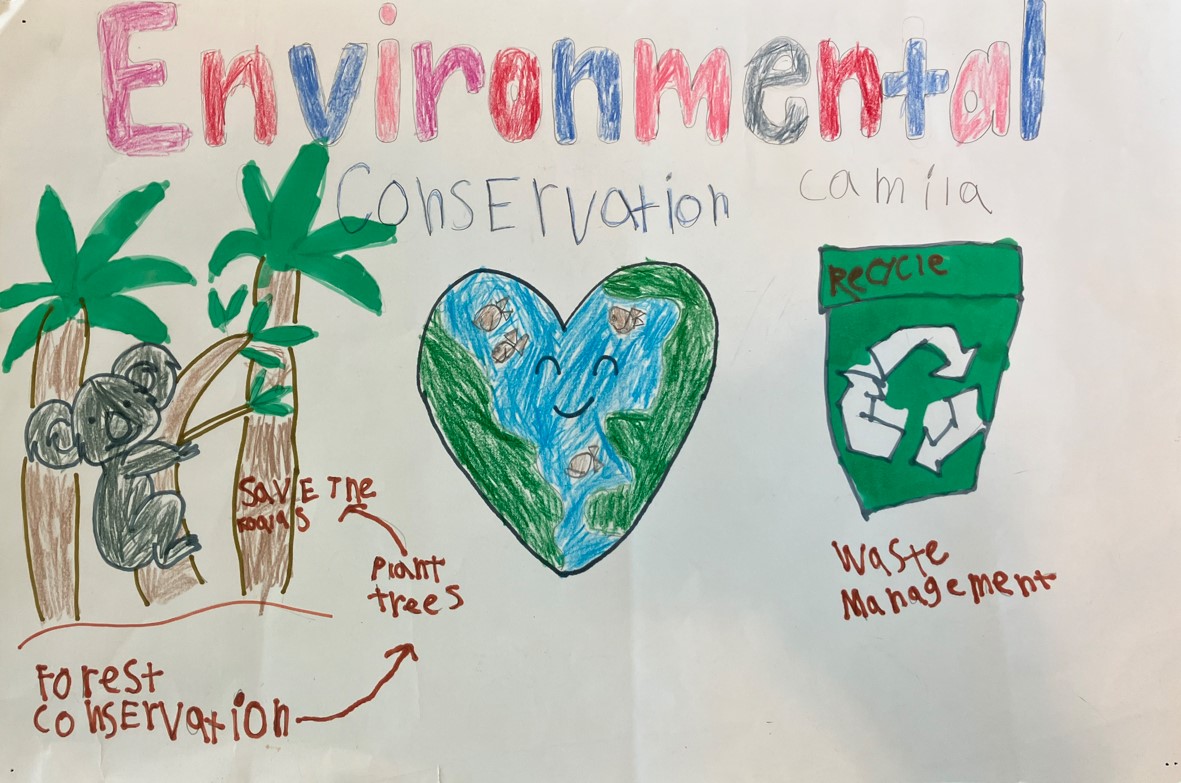 Environmental
ConsErvation camila
RECYCle
SavE The
koalas
Plant
trees
Waste
Management
Forest
consErvation